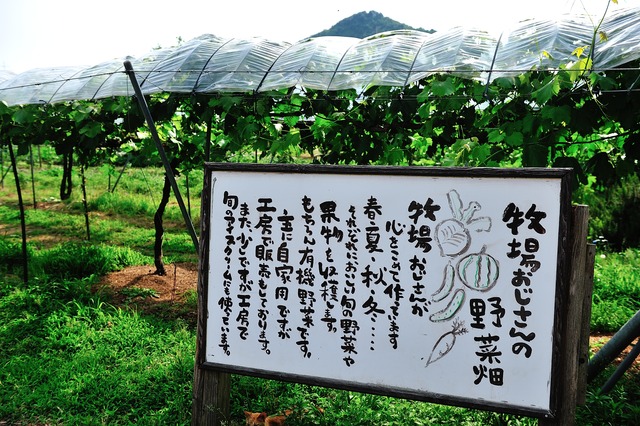 牧場おじさんの
野菜畑
牧場おじさんが
心をこめて作ってます
春・夏・秋・冬……
それぞれにおこる旬の野菜や
果物を収穫します。
もちろん有機野菜です。
主に自家用ですが
工房で販売もしております。
また、少しですが工房で
旬のアイスクリームにも使っています。